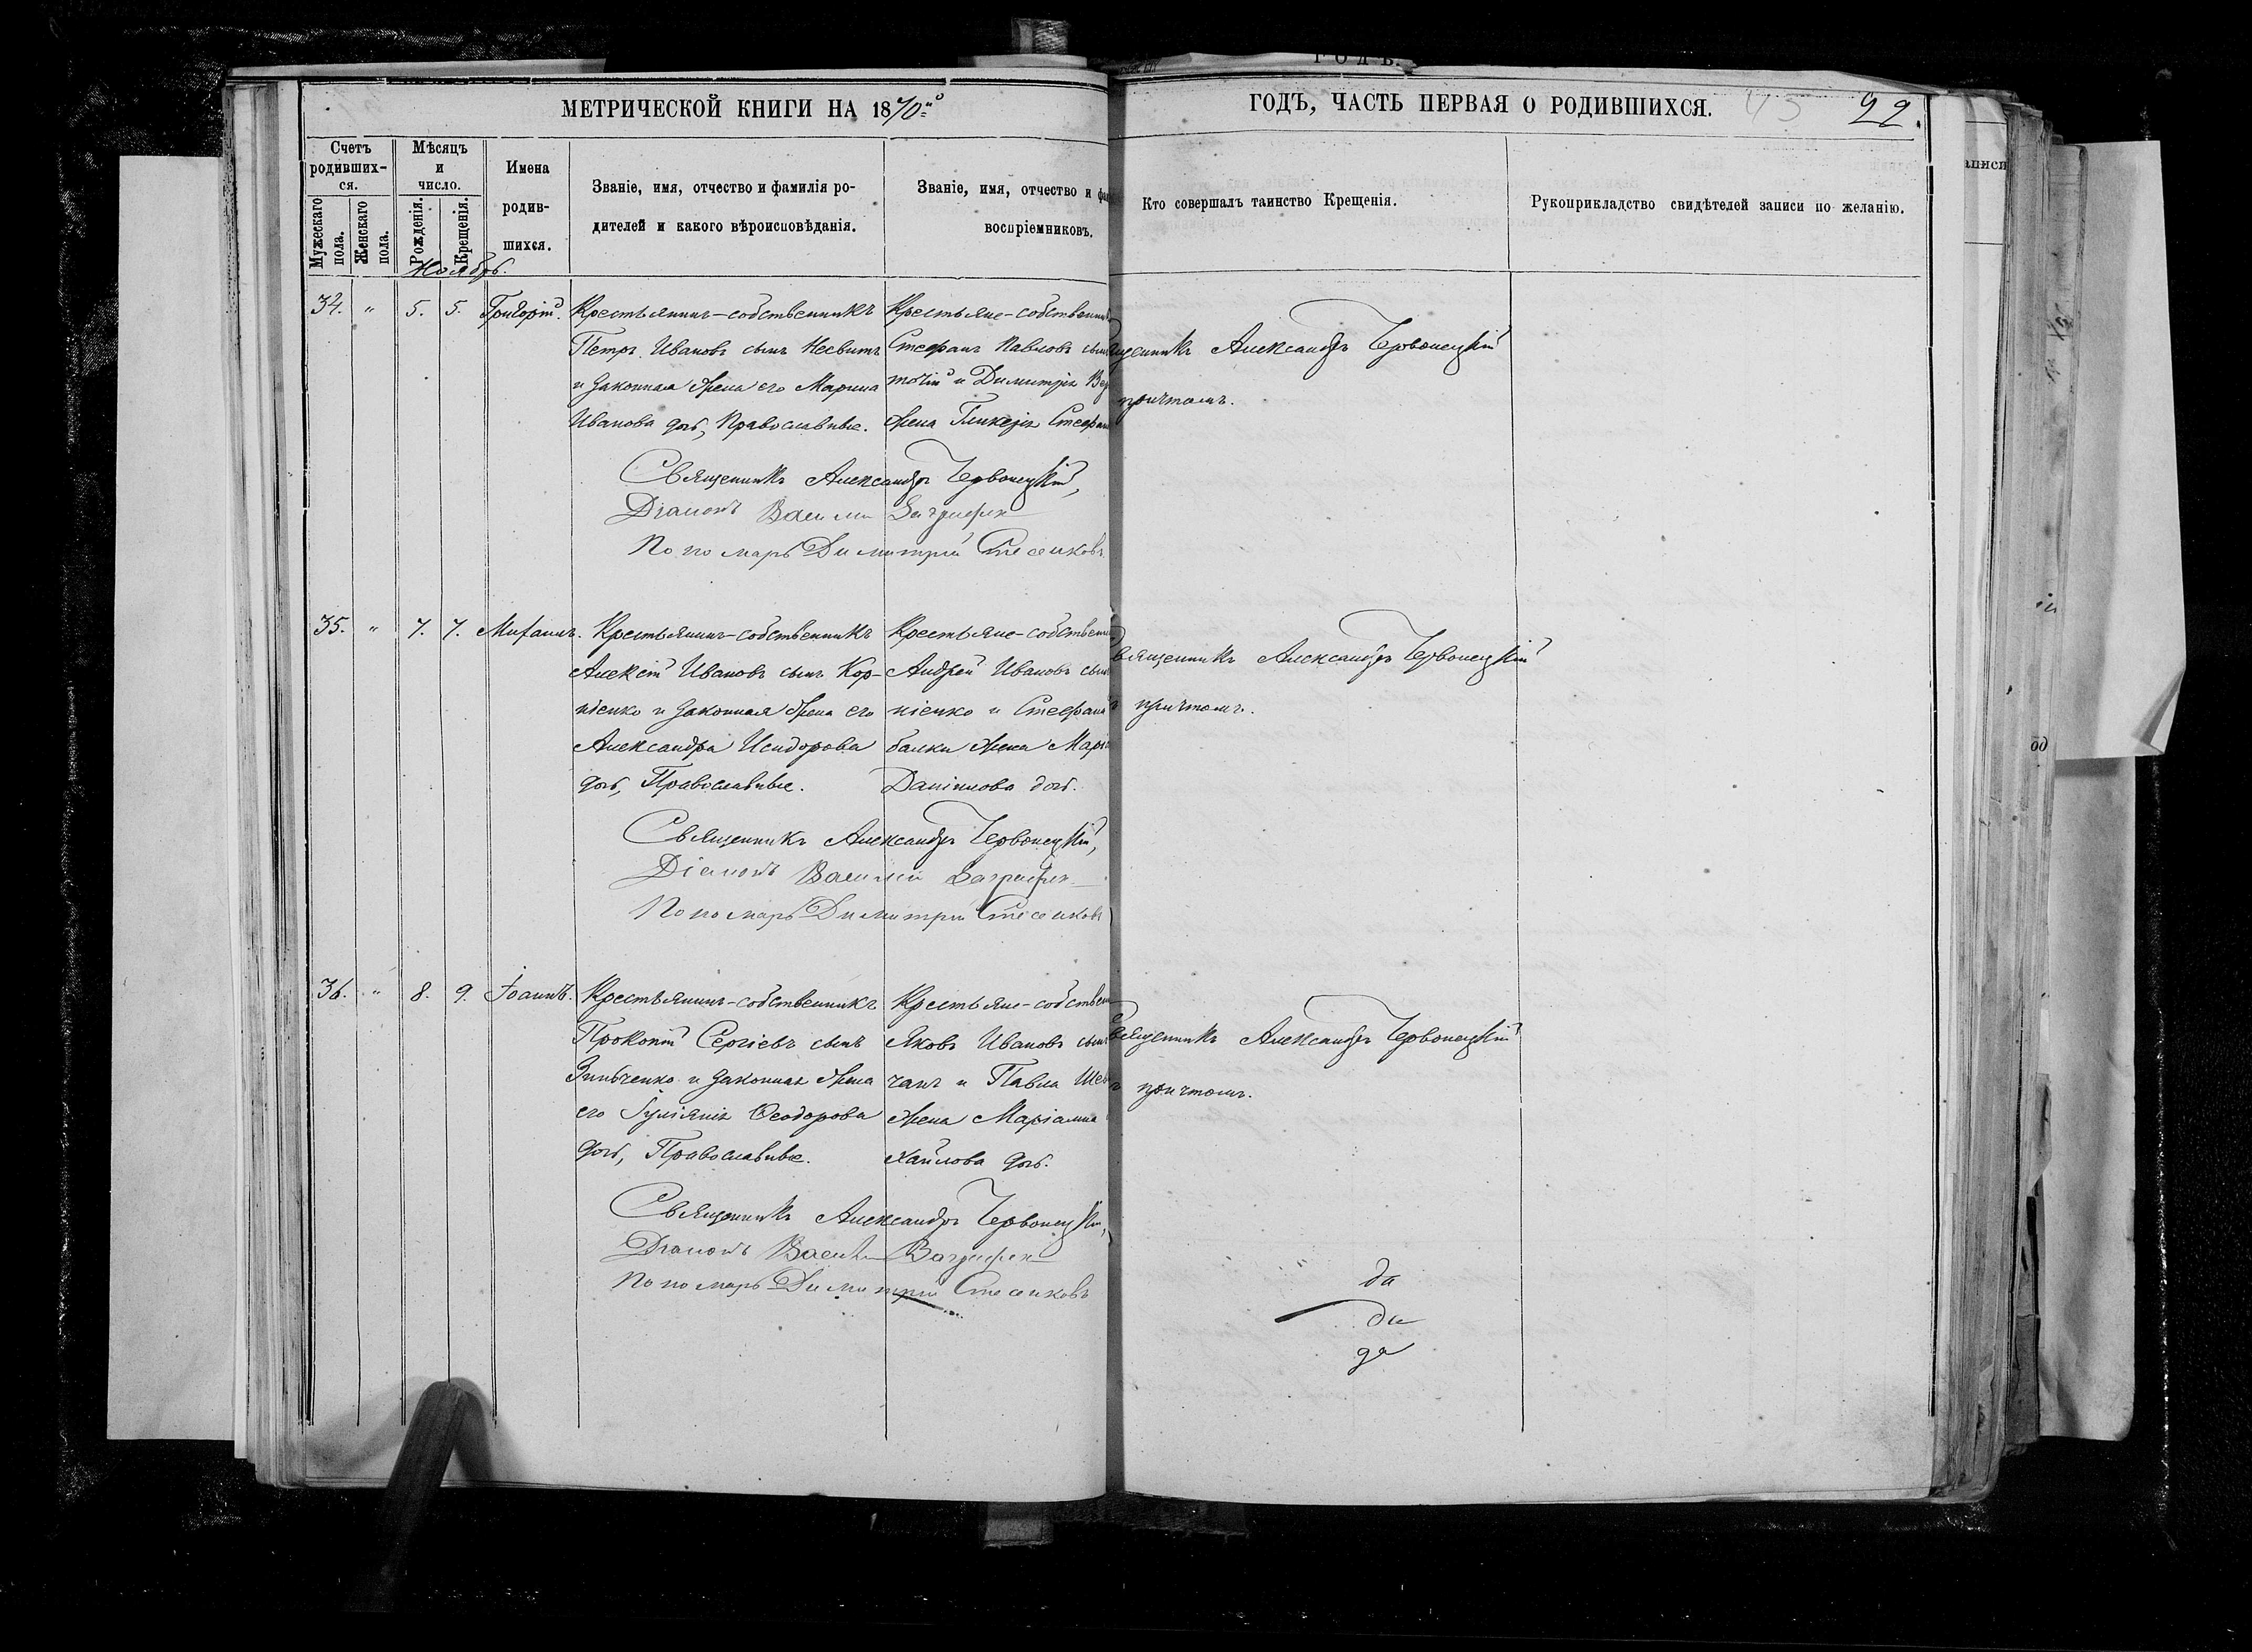 МЕТРИЧЕСКОЙ КНИГИ НА 1870й
ГОДЪ, ЧАСТЬ ПЕРВАЯ О РОДИВШИХСЯ.
22.
Счетъ родивших-ся.
Мужескаго пола.
Женскаго пола.
Мѣсяцъ и число.
Рожденія.
Крещенія.
Имена родив-шихся.
Званіе, имя, отчество и фамилія ро-
дителей и какого вѣроисповѣданія.
Званіе, имя, отчество и
воспріемниковъ.
Кто совершалъ таинство Крещенія.
Рукоприкладство свидѣтелей записи по желанію.
Ноябрь.
34. " 5. 5. Григорій.
Крестьянинъ-собственникъ
Петръ Ивановъ сынъ Несвитъ
и законная жена его Марина
Иванова дочь, Православные.
Крестьяне-собственн
Стефанъ Павловъ сынъ
точій и Димитрія Вер
жена Гликерія Стефан
щенникъ Александръ Червонецкій
причтомъ.
Священникъ Александръ Червонецкій,
Діаконъ Василій
Пономарь Димитрій
35. " 7. 7. Михаилъ.
Крестьянинъ-собственникъ
Алексій Ивановъ сынъ Кор-
ніенко и законная жена его
Александра Исидорова
дочь, Православные.
Крестьяне-собственн
Андрей Ивановъ сын
ніенко и Стефана
балки жена Марі
Даніилова дочь.
вященникъ Александръ Червонецкій
причтомъ.
Священникъ Александръ Червонецкій,
Діаконъ Василій
Пономарь Димитрій
36. " 8. 9. Іоаннъ.
Крестьянинъ-собственникъ
Прокопій Сергіевъ сынъ
Зинченко и законная жена
его Іуліанія Ѳеодорова
дочь, Православные.
Крестьяне-собствен
Яковъ Ивановъ сын
чанъ и Павла Шев
жена Маріамна
хаилова дочь.
Священникъ Александръ Червонецкій
причтомъ.
Священникъ Александръ Червонецкій,
Діаконъ Василій
Пономарь Димитрій
да
да
да